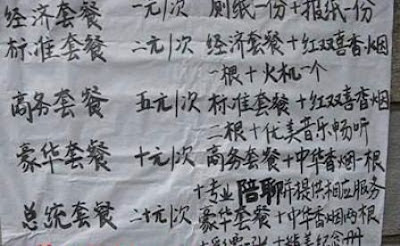 经济套餐 一元/次 厕纸一份+报纸一份
标准套餐 二元/次 经济套餐+红双喜香烟
一根+火机一个
商务套餐 五元/次 标准套餐+红双喜香烟
二根+优美音乐畅听
豪华套餐 十元/次 商务套餐+中华香烟一根
+专业陪聊并提供相应服务
总统套餐 二十元/次 豪华套餐+中华香烟两根